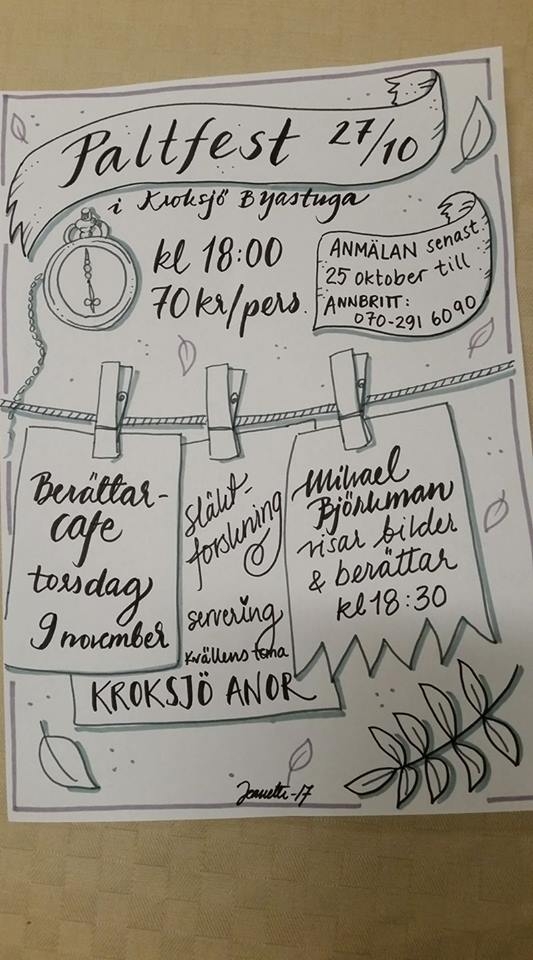 Paltfest 27/10
i Kroksjö Byastuga
kl 18:00
70 kr/pers.
ANMÄLAN senast
25 oktober till
ANNBRITT:
070-291 60 90
Berättar-
cafe
torsdag
9 november
Släkt-
forskning
servering
Kvällens tema
KROKSJÖ ANOR
Mikael
Björkman
visar bilder
& berättar
kl 18:30
Jeanette -17